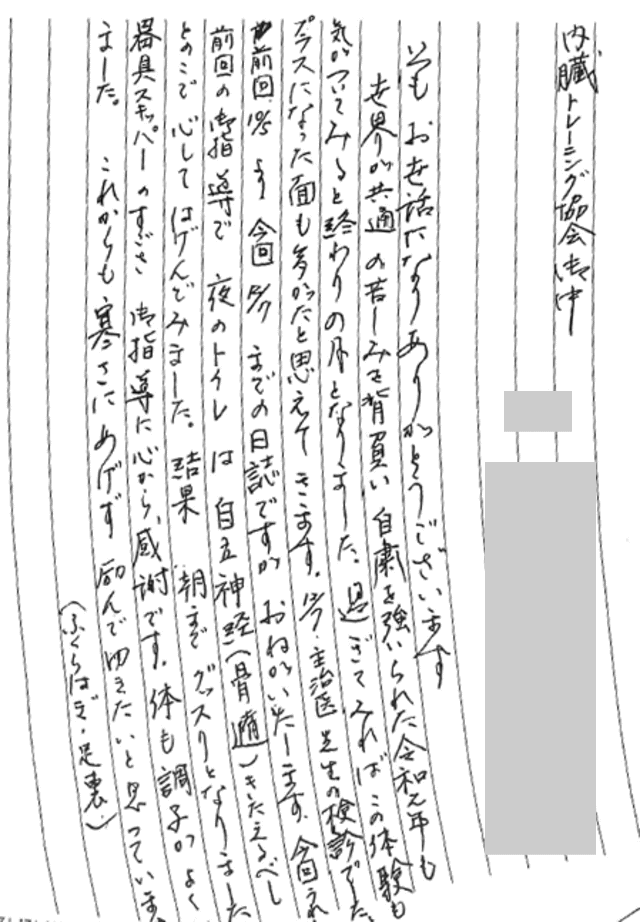 内臓トレーニング協会御中
いつもお世話になりありがとうございます
世界が共通の苦しみを背負い自粛を強いられた令和元年も
気がついてみると終わりの月となりました。過ぎてみればこの体験も
プラスになった面も多かったと思えてきます。12/7.主治医先生の検診でした。
前回10/5より今回12/7までの日誌ですがおねがいたします。今回うれ
前回の御指導で夜のトイレは自立神経(骨随)きたえるべし
とのことで心してはげんでみました。結果朝までグッスリとなりました
器具スキッパーのすごさ御指導に心から感謝です。体も調子がよく
ました。これからも寒さにめげず励んで四きたいと思っていま
(ふくらはぎ・足裏)